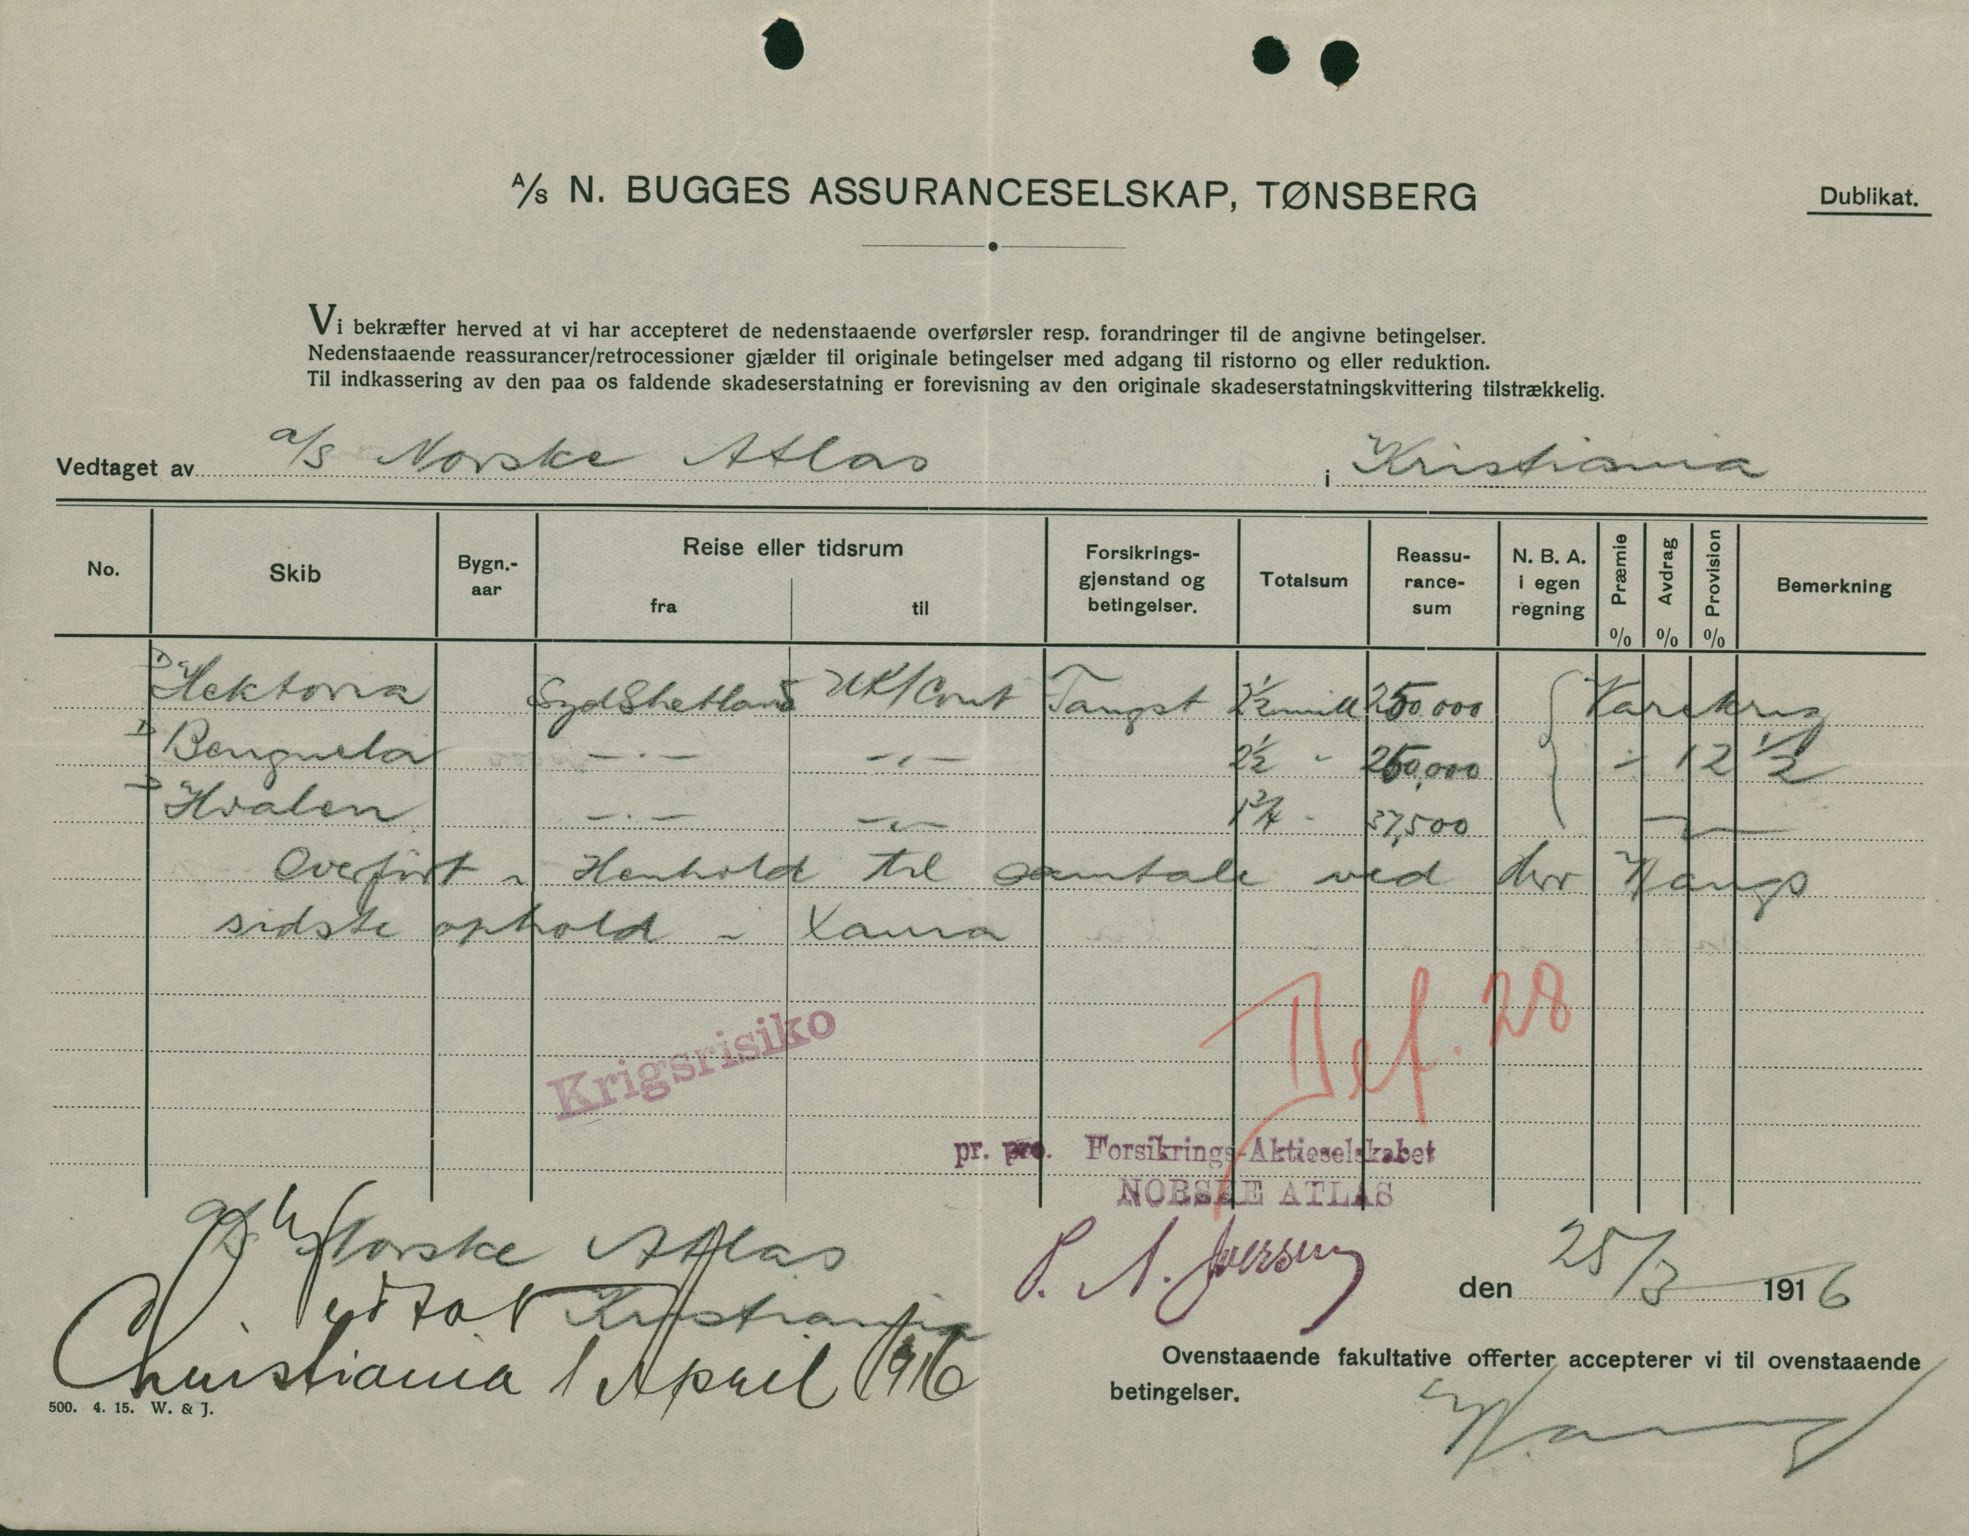 A/S N. BUGGES ASSURANCESELSKAP, TØNSBERG
Dublikat.
Vi bekræfter herved at vi har accepteret de nedenstaaende overførsler resp. forandringer til de angivne betingelser.
Nedenstaaende reassurancer/retrocessioner gjælder til originale betingelser med adgang til ristorno og eller reduktion.
Til indkassering av den paa os faldende skadeserstatning er forevisning av den originale skadeserstatningskvittering tilstrækkelig.
Vedtaget av a/s Norske Atlas i Kristiania
No. Skib Bygn.-aar Reise eller tidsrum fra til Forsikrings-gjenstand og betingelser. Totalsum Reassu-rance-sum N. B. A. i egen regning Præmie % Avdrag % Provision % Bemerkning
D Hektoria SydShetland UK/Cont Fangst 2½ mill 250.000
D Benguela —·— —„— 2½ " 250,000 ÷ 12½
D Hvalen —·— —„— 1¾ " 37,500 —„—
Overført i Henhold til samtale ved Herr Haugs
sidste ophold i
Krigsrisiko
Def. 28
pr. pro. Forsikrings-Aktieselskabet
NORSKE ATLAS
a/s Norske Atlas
Vedtat Kristiania
Christiania 1 April 1916
P. A. Iversen
den 25/3 1916
Ovenstaaende fakultative offerter accepterer vi til ovenstaaende
betingelser.
500. 4. 15. W. & J.